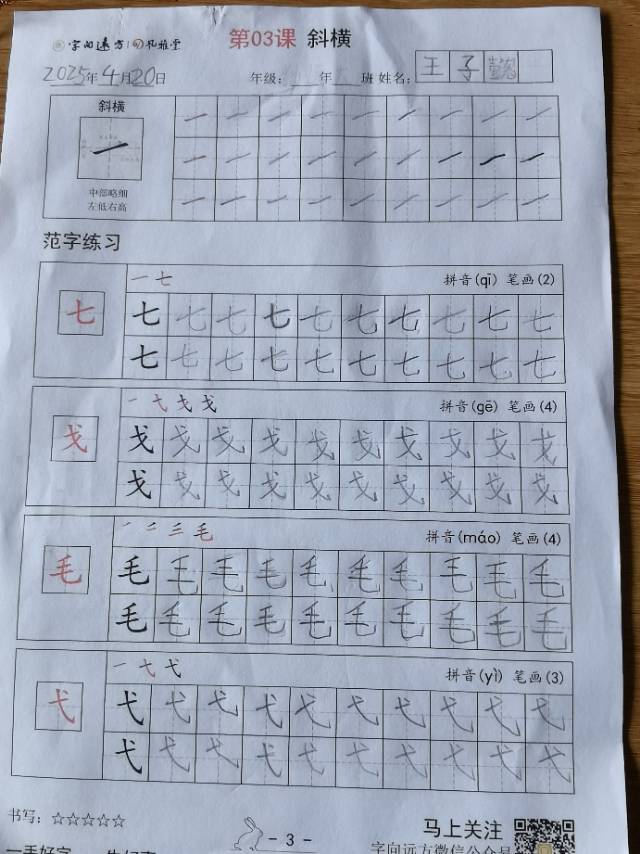 字向远方 礼雅堂 第03课 斜横
2025年4月20日 年级: 年 班 姓名: 王子
斜横
一
中部略细
左低右高
范字练习
一 七 拼音(qī) 笔画(2)
七 七 七 七 七 七 七 七 七 七 七
七 七 七 七 七 七 七 七 七 七
一 弋 戈 戈 拼音(gē) 笔画(4)
戈 戈 戈 戈 戈 戈 戈 戈 戈 戈 戈
戈 戈 戈 戈 戈 戈 戈 戈 戈 戈
拼音(máo) 笔画(4)
毛 毛 毛 毛 毛 毛 毛 毛 毛 毛 毛
毛 毛 毛 毛 毛 毛 毛 毛 毛 毛
一 弋 弋 拼音(yì) 笔画(3)
弋 弋 弋 弋 弋 弋 弋 弋 弋 弋 弋
弋 弋 弋 弋 弋 弋 弋 弋 弋 弋
书写: ☆☆☆☆☆ - 3 - 马上关注
一手好字 字向远方微信公众号